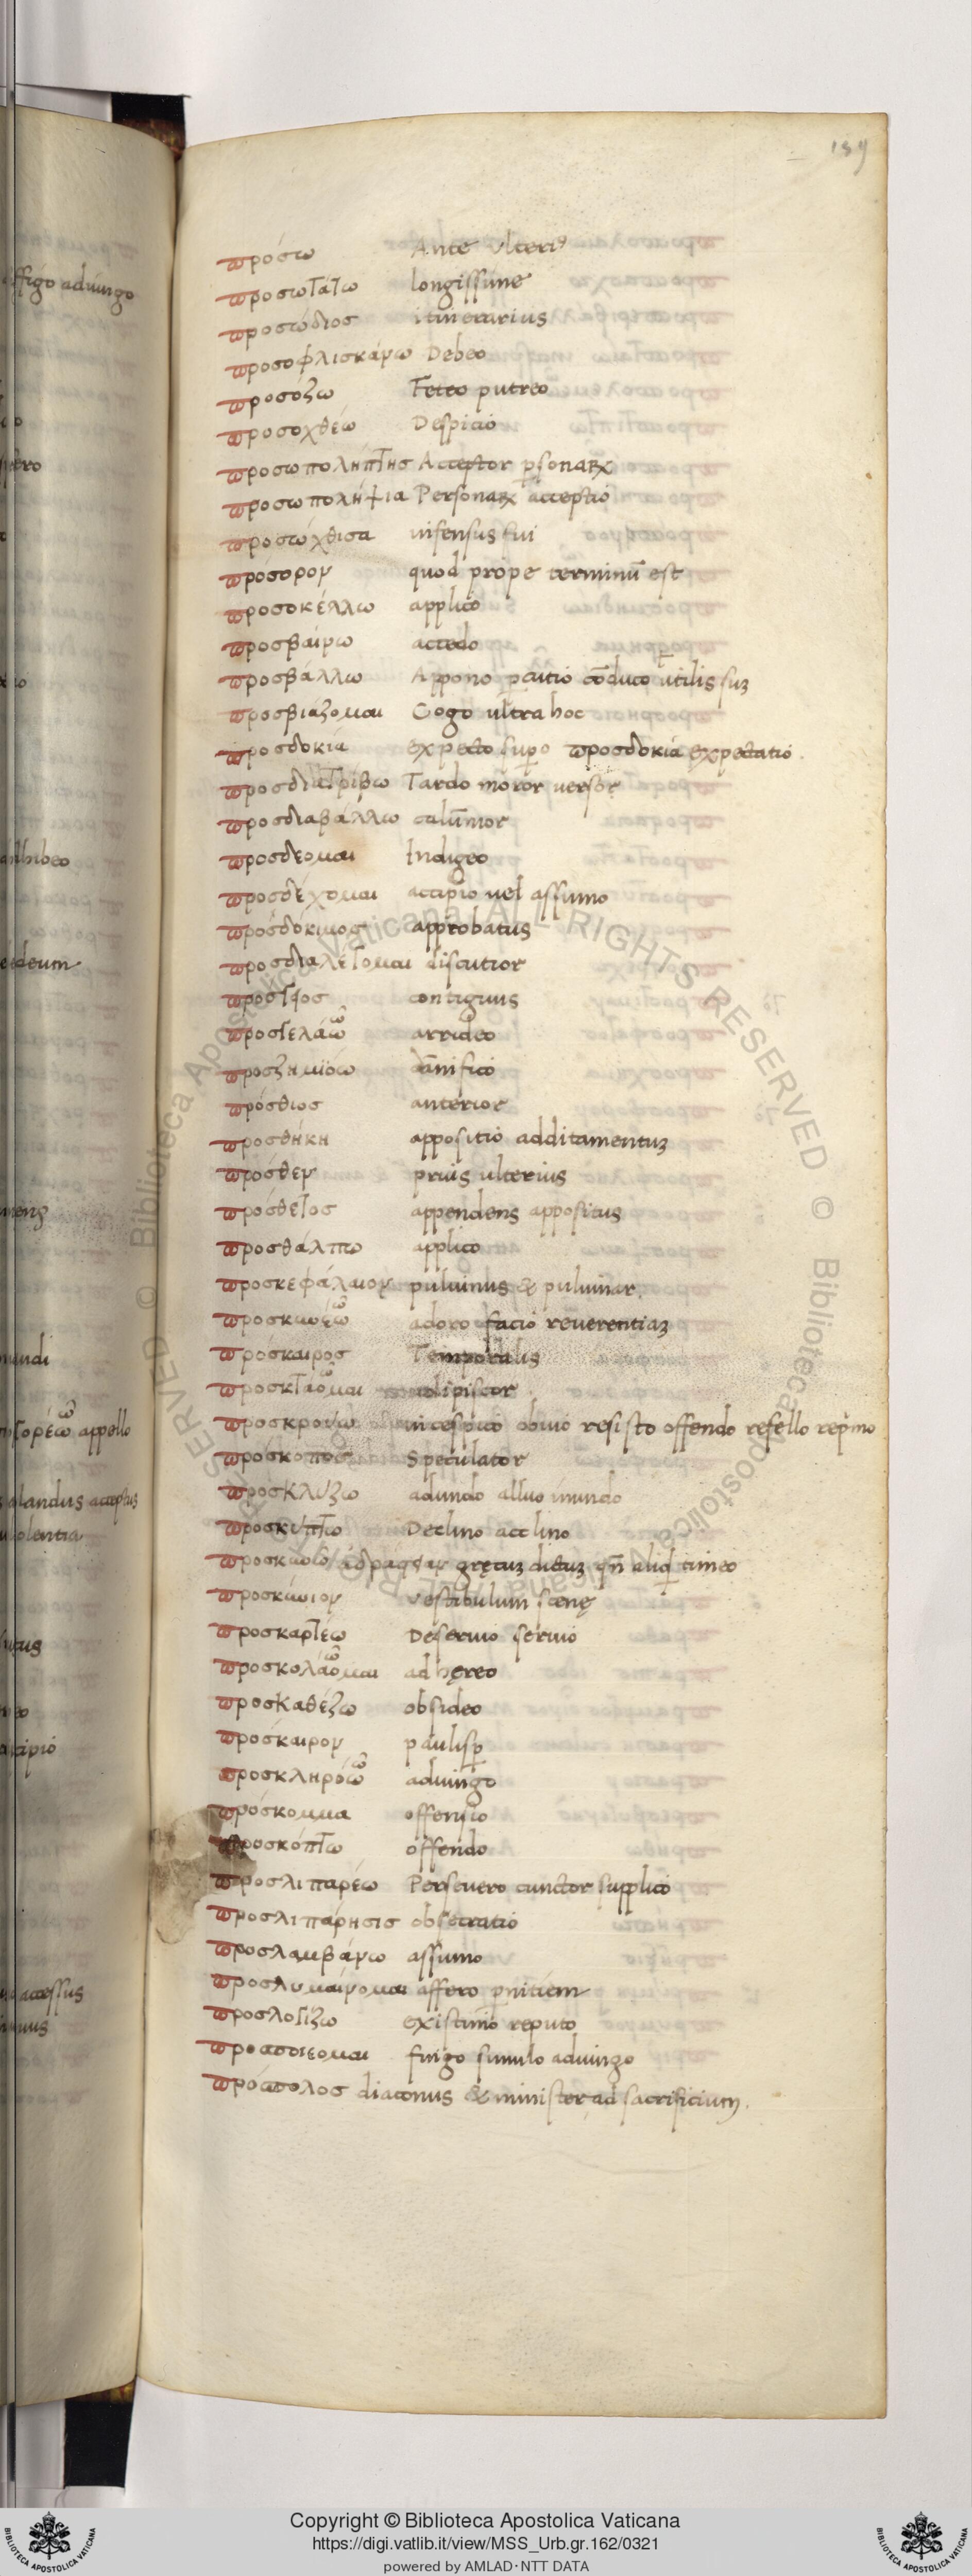 159
πρόσω Ante ulteri9
προσωτάτω longissime
προσώδιος itinerarius
προσοφλισκάνω Debeo
προσόζω Feteo putreo
προσοχθέω Despicio
προσωπολήπτης Acceptor psonaꝝ
προσωπολήψια Personaꝝ acceptio
προσώχθισα infensus fui
προσορον quod prope terminū est
προσοκέλλω applico
προσβαίνω accedo
προσβάλλω Appono utilis suꝫ
προσβιάζομαι Cogo ultra hoc
προσδοκιά expecto supo προσδοκιά expectatio.
προσδιατρίβω Tardo moror versor
προσδιαβάλλω calūnior
προσδεομαι Indigeo
προσδέχομαι accipio vel assumo
προσδόκιμος approbatus
προσδιαλέγομαι discutior
προσγειος contiguus
προσγελάω ῶ arrideo
προσζημιόω dānifico
πρόσθιος anterior
προσθήκη appositio additamentuꝫ
πρόσθεν prius ulterius
πρόσθετος appendens appositus
προσθάλπω applico
προσκεφάλαιον pulvinus & pulvinar.
προσκυνέω ῶ adoro facio reverentiaꝫ
πρόσκαιρος Temporalis
προσκτάομαι adipiscor
προσκρούω incespico obvio resisto offendo refello repimo
προσκοπος Speculator
προσκλύζω adundo alluo inundo
προσκύπτω Declino acclino
gręcuꝫ dictuꝫ qn̄ aliqd timeo
vestibulum scenę
προσκαρτέω Deservio servio
προσκολάομαι ῶ adhęreo
προσκαθέζω obsideo
προσκαιρον paulisp
προσκληρόω ῶ adiungo
πρόσκομμα offensio
προσκόπτω offendo
προσλιπαρέω Persevero cunctor supplico
προσλιπάρησις obsecratio
προσλαμβάνω assumo
προσλυμαίνομαι affero pnitiem
προσλογίζω existimo reputo
προσποιεομαι fingo simulo adiungo
πρόσπολος diaconus & minister ad sacrificium.
Copyright © Biblioteca Apostolica Vaticana
https://digi.vatlib.it/view/MSS_Urb.gr.162/0321
powered by AMLAD·NTT DATA